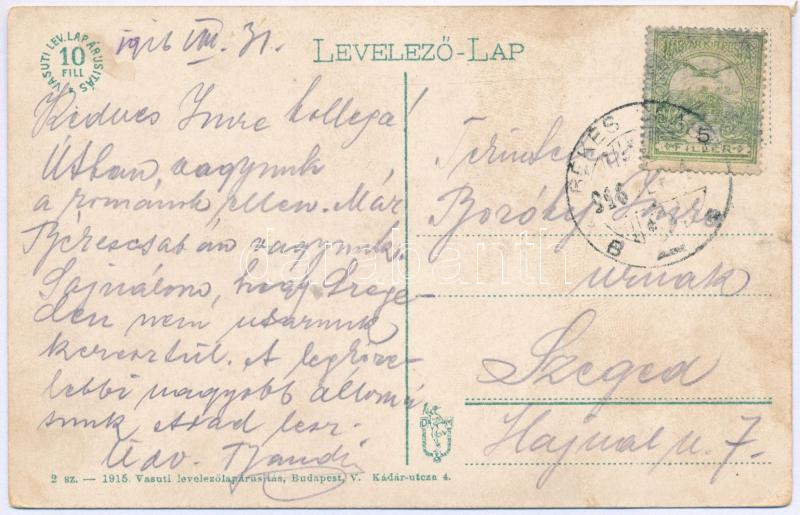 VASUTI LEV. LAP ÁRUSITÁS
10
FILL
1916 VIII. 31.
LEVELEZŐ-LAP
Kedves Imre kollega!
Útban vagyunk
a románok ellen. Már
Békéscsabán vagyunk.
Sajnálom, hogy Szege-
den nem utazunk
keresztül. A legköze-
lebbi nagyobb állomá
sunk Arad lesz.
Üdv.
MAGYAR KIR. POSTA
FILLÉR
BÉKÉS
916
B
Imre
urnak
Szeged
Hajnal u. 7.
darabanth
2 sz. — 1915. Vasuti levelezőlapárusitás, Budapest, V. Kádár-utcza 4.